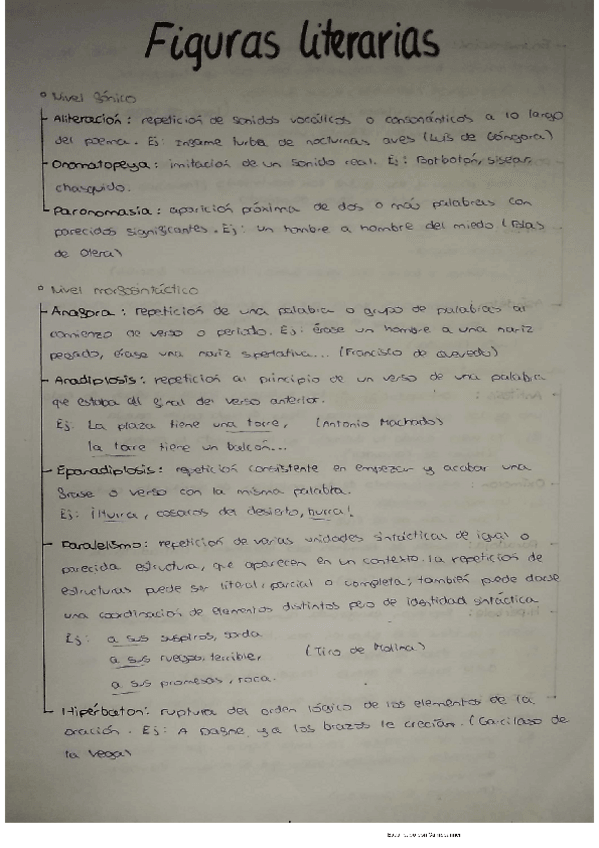 Figuras literarias
° Nivel fónico
Aliteración: repetición de sonidos vocálicos o consonánticos a lo largo
del poema. Ej: Infame turba de nocturnas aves (Luis de Góngora)
Onomatopeya: imitación de un sonido real. Ej: Borbotón, sisear,
chasquido.
Paronomasia: aparición próxima de dos o más palabras con
parecidos significantes. Ej: un hombre a hombre del miedo (Blas
de Otero)
° Nivel morfosintáctico
Anáfora: repetición de una palabra o grupo de palabras al
comienzo de verso o período. Ej: érase un hombre a una nariz
pegado, érase una nariz superlativa... (Francisco de Quevedo)
Anadiplosis: repetición al principio de un verso de una palabra
que estaba al final del verso anterior.
Ej: La plaza tiene una torre, (Antonio Machado)
la torre tiene un balcón...
Epanadiplosis: repetición consistente en empezar y acabar una
frase o verso con la misma palabra.
Ej: ¡Hurra, cosacos del desierto, hurra!
Paralelismo: repetición de varias unidades sintácticas de igual o
parecida estructura, que aparecen en un contexto. la repetición de
estructuras puede ser literal, parcial o completa; también puede darse
una coordinación de elementos distintos pero de identidad sintáctica
Ej: a sus suspiros, sorda
a sus ruegos, terrible, (Tirso de Molina)
a sus promesas, roca.
Hipérbaton: ruptura del orden lógico de los elementos de la
oración. Ej: A Dafne ya los brazos le crecían. (Garcilaso de
la Vega)